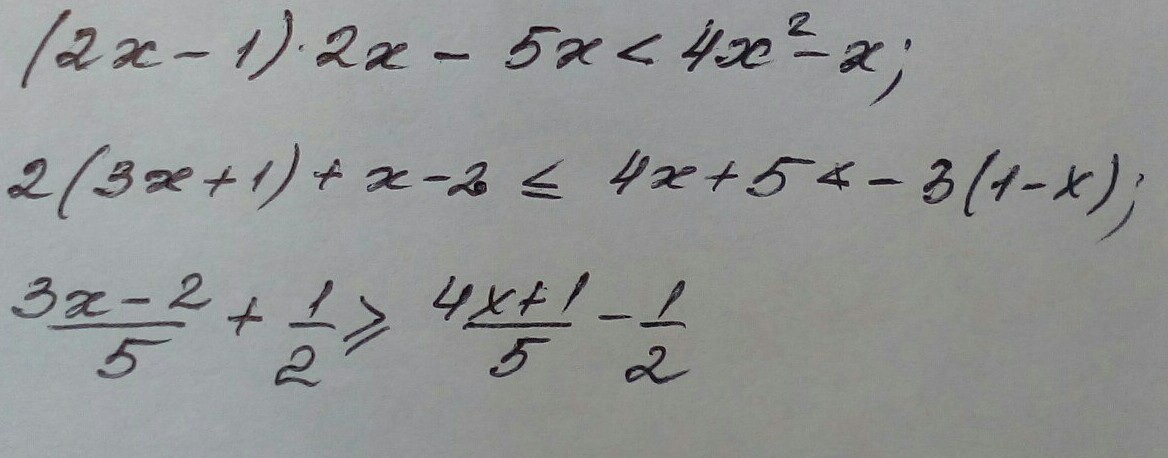 (2x - 1)·2x - 5x < 4x² - x;
2(3x + 1) + x - 2 ≤ 4x + 5 < - 3(1 - x);
(3x - 2)/5 + 1/2 ⩾ (4x + 1)/5 - 1/2